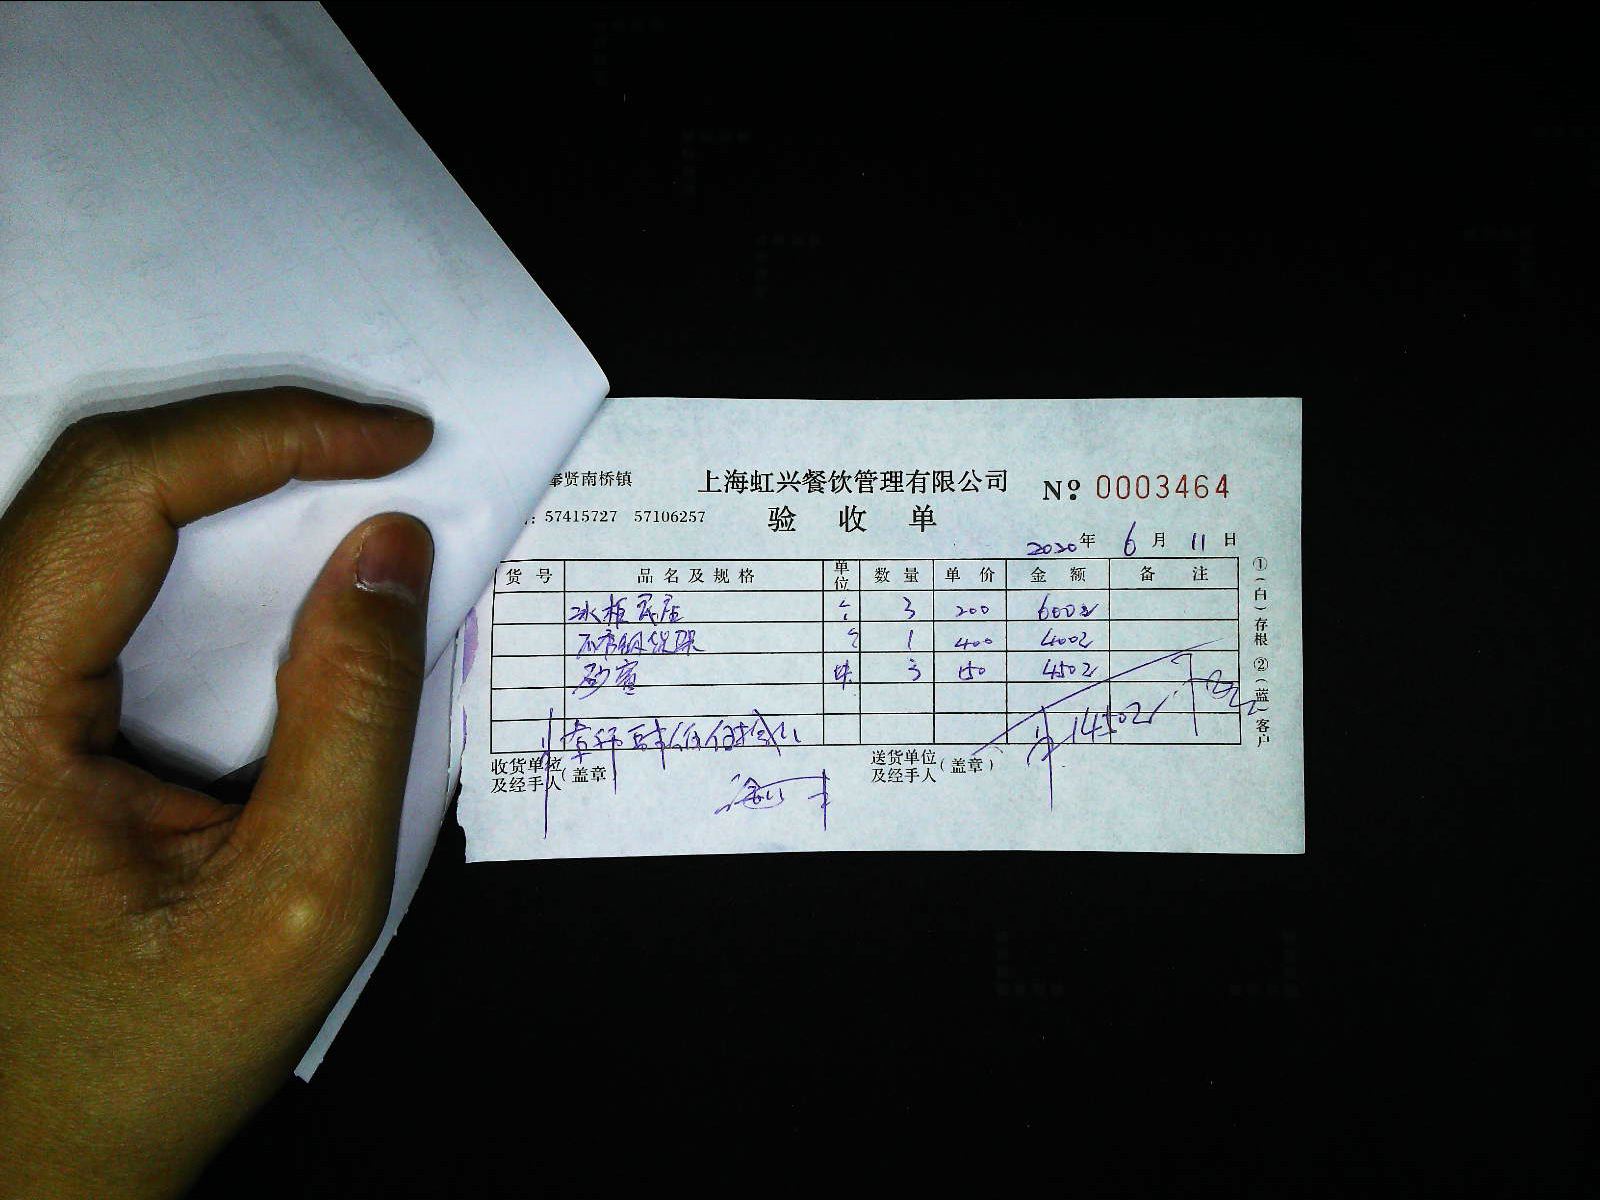 奉贤南桥镇 上海虹兴餐饮管理有限公司 No 0003464
: 57415727 57106257 验收单
2020年 6月 11日
货号 品名及规格 单位 数量 单价 金额 备注
冰柜 个 3 200 600元
不锈钢货架 个 1 400 400元
块 3 150 450元
1450元
收货单位及经手人(盖章 送货单位及经手人(盖章)
①(白)存根 ②(蓝)客户